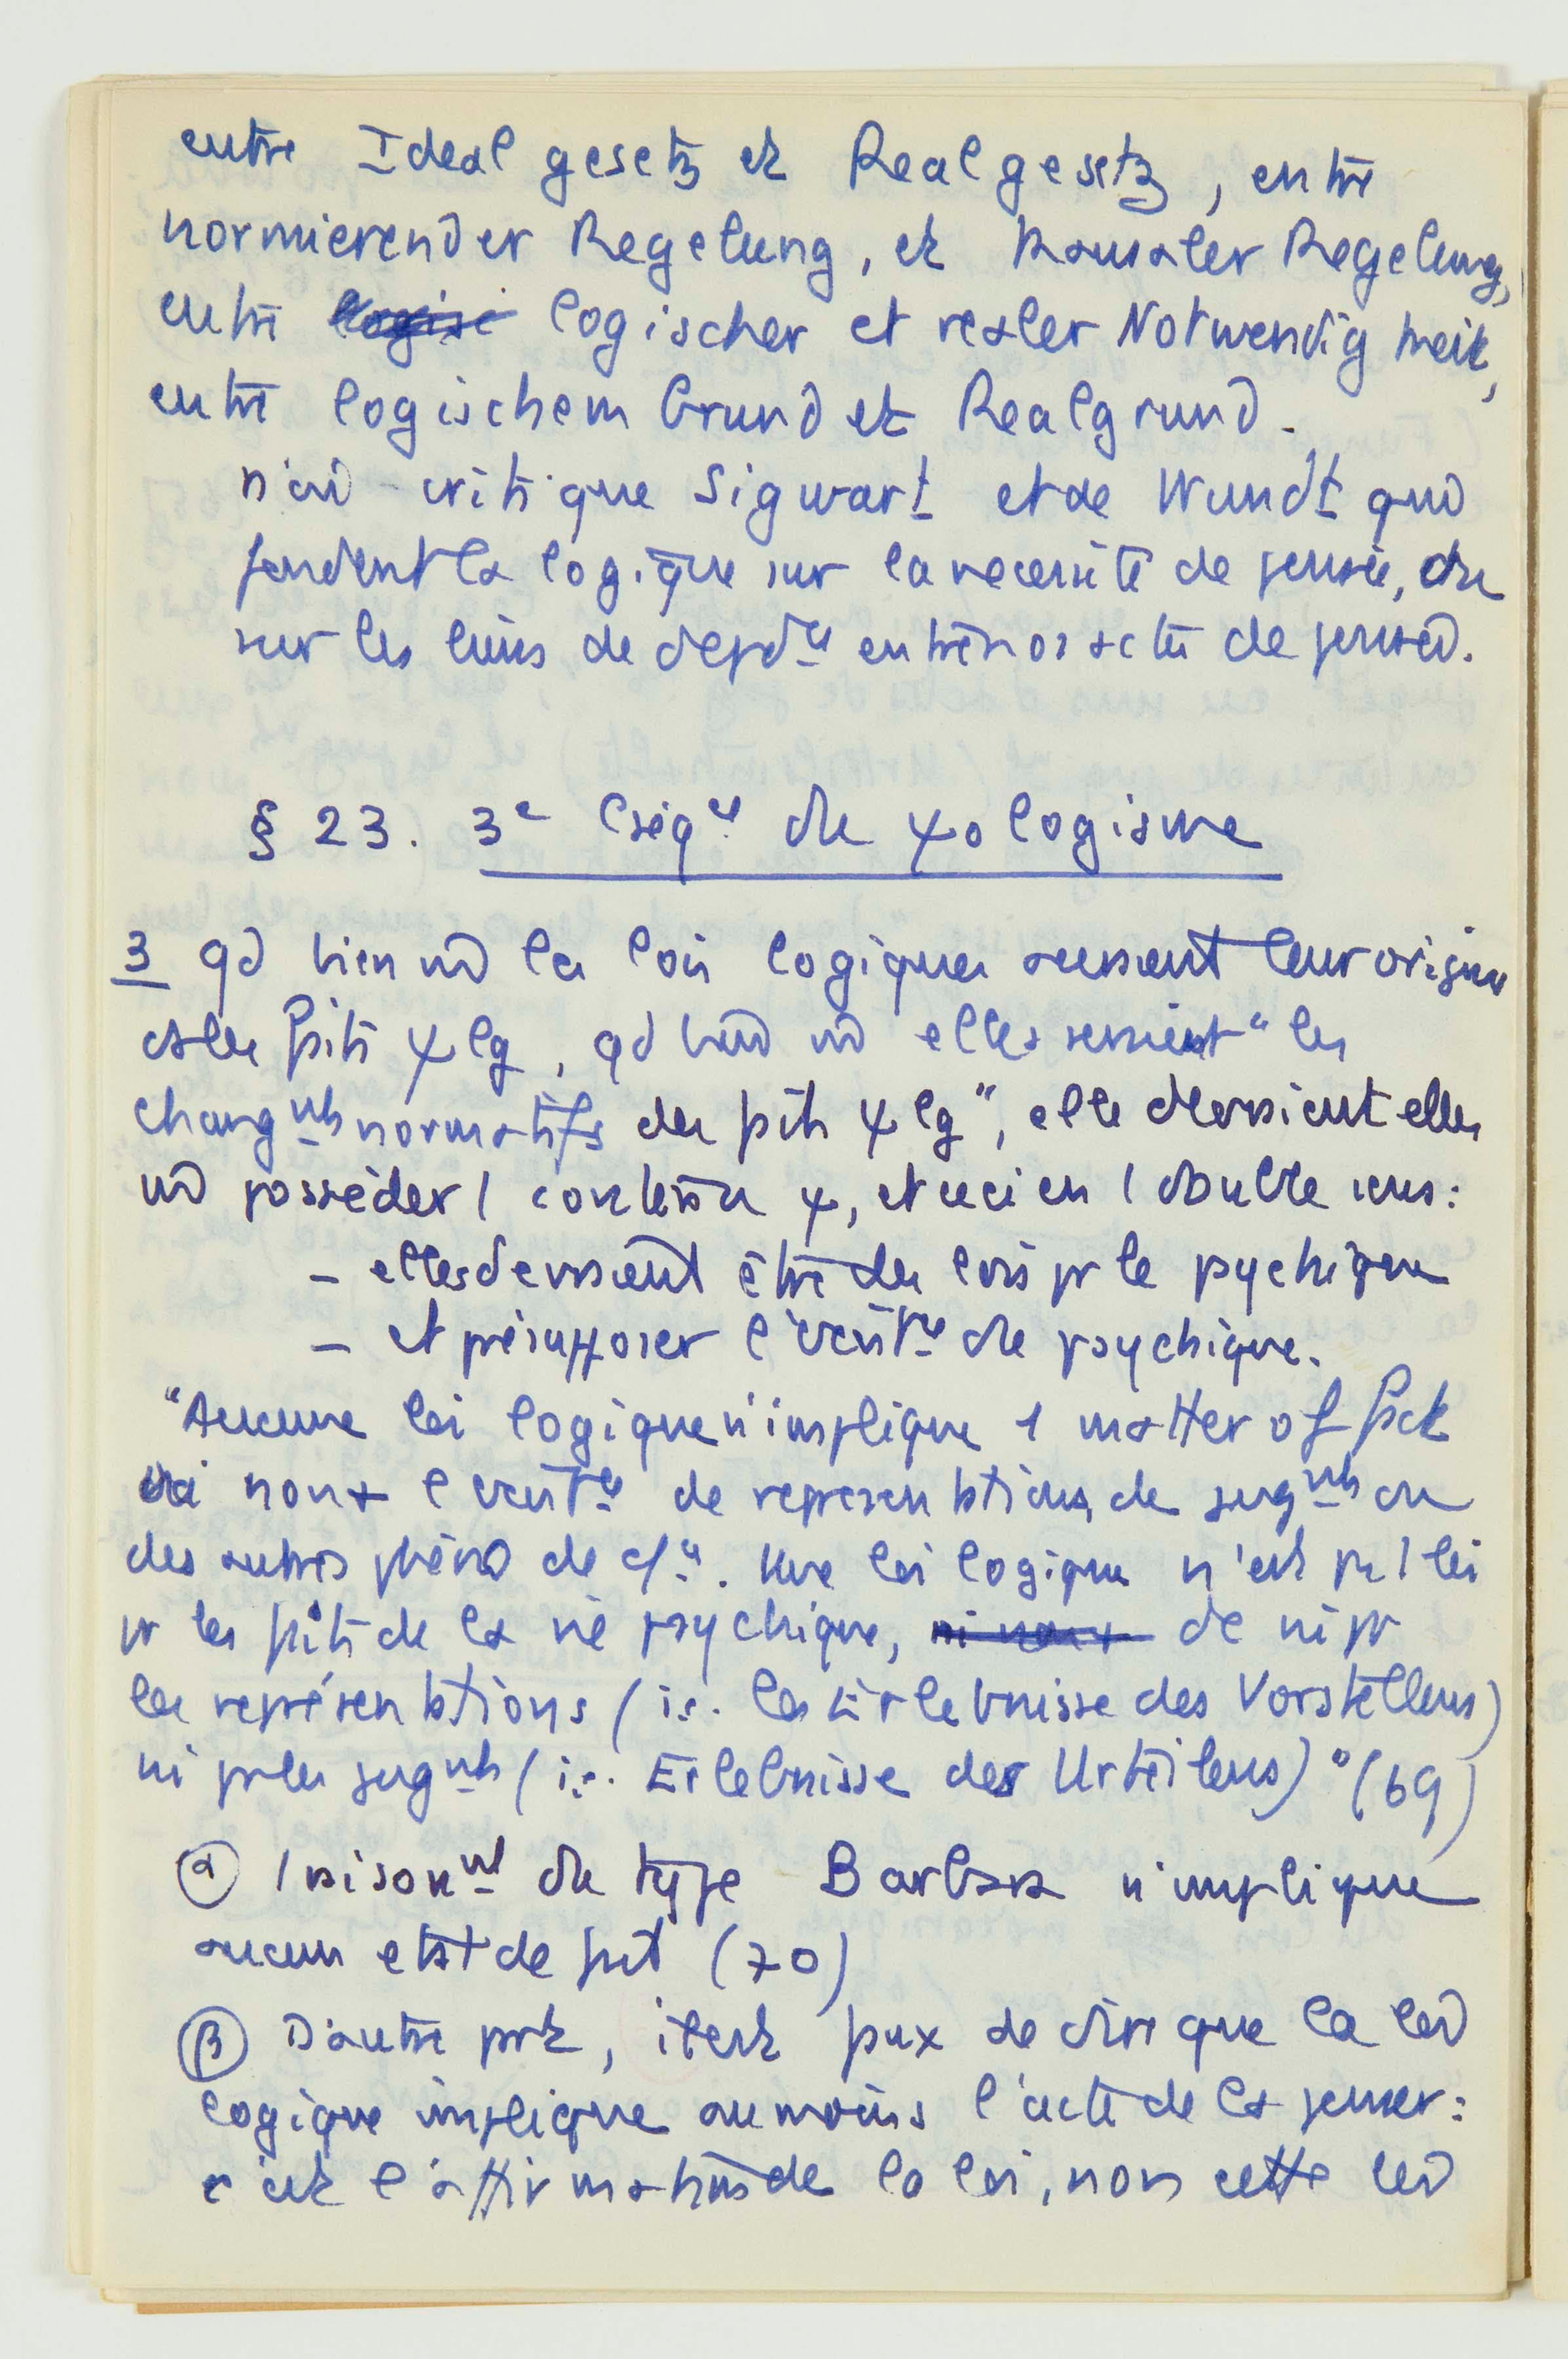 entre Idealgesetz et Realgesetz, entre
normierender Regelung, et kausaler Regelung,
entre logischer et realer Notwendigkeit,
entre logischem Grund et Realgrund.
D'où critique Sigwart et de Wundt qui
fondent la logique sur la necessité de pensée, ou
sur les liens de dépdce entre nos actes de pensée.
§ 23. 3e Cséqce du ψologisme
3 qd bien m les lois logiques auraient leur origine
ds les faits ψlg, qd bien m elles seraient "les
changmts normatifs des faits ψlg", elles devraient elles
m posséder 1 contenu ψ, et ceci en 1 double sens :
– elles devraient être des lois pr le psychique
– et présupposer l'existce du psychique.
"Aucune loi logique n'implique 1 matter of fact
ni non + l'existce de représentations, de jugmts ou
des autres phéno de ce. Une loi logique n'est pas 1 loi
pr les faits de la vie psychique, ni non + de ni pr
les représentations (i.e. les Erlebnisse des Vorstellens)
ni pr les jugmts (i.e. Erlebnisse des Urteilens)" (69)
α 1 raisonmt du type Barbara n'implique
aucun etat de fait (70)
β D'autre part, il est faux de dire que la loi
logique implique au moins l'acte de la penser :
c'est l'affirmation de la loi, non cette loi